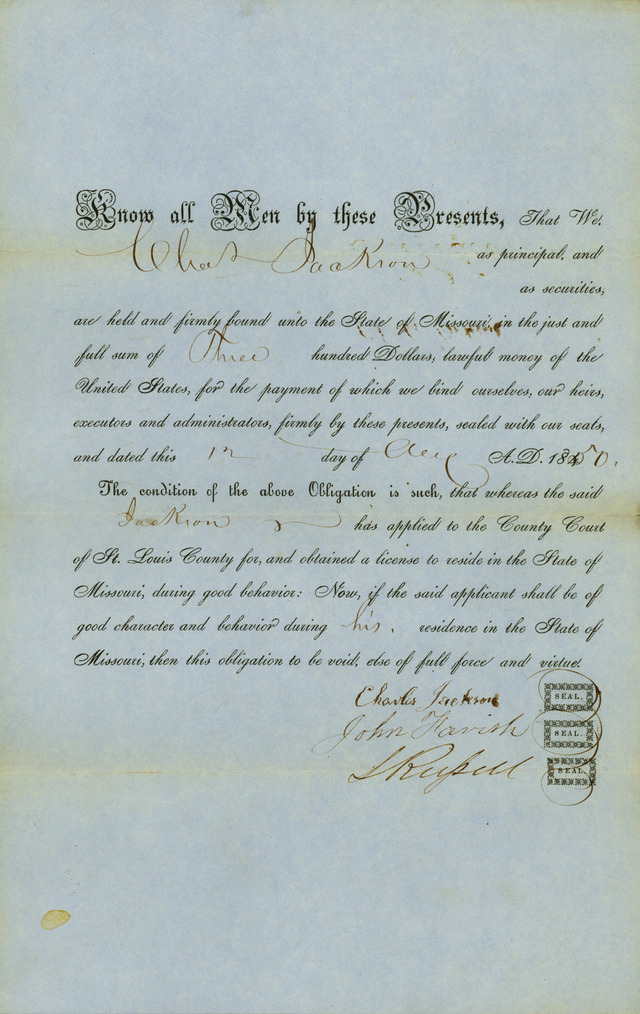 Know all Men by these Presents, That We.
Chas Jackson as principal, and
as securities,
are held and firmly bound unto the State of Missouri, in the just and
full sum of Three hundred Dollars, lawful money of the
United States, for the payment of which we bind ourselves, our heirs,
executors and administrators, firmly by these presents, sealed with our seals,
and dated this 12 day of Aug A.D. 1850.
The condition of the above Obligation is such, that whereas the said
Jackson has applied to the County Court
of St. Louis County for, and obtained a license to reside in the State of
Missouri, during good behavior: Now, if the said applicant shall be of
good character and behavior during his. residence in the State of
Missouri, then this obligation to be void, else of full force and virtue.
Charles Jackson SEAL.
John SEAL.
S Russell SEAL